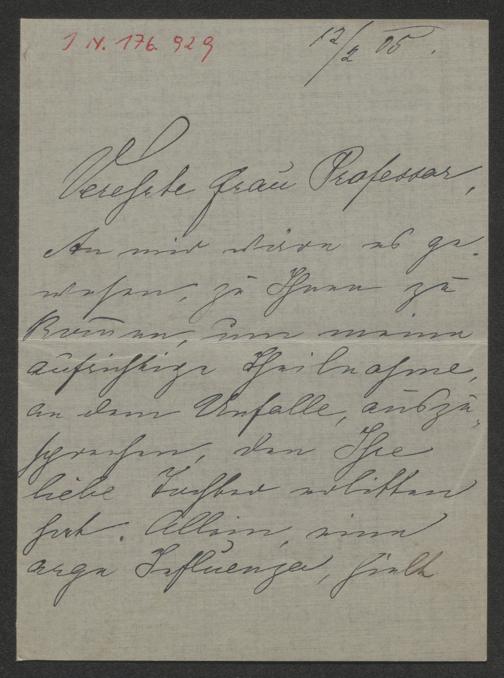 I N. 176.929
12/2 05.
Verehrte Frau Professor,
An mir wäre es ge-
wesen, zu Ihnen zu
kom̄en, um meine
aufrichtige Theilnahme,
an dem Unfalle, auszu-
sprechen, den Ihre
liebe Tochter erlitten
hat. Allein, eine
arge Influenza, hielt